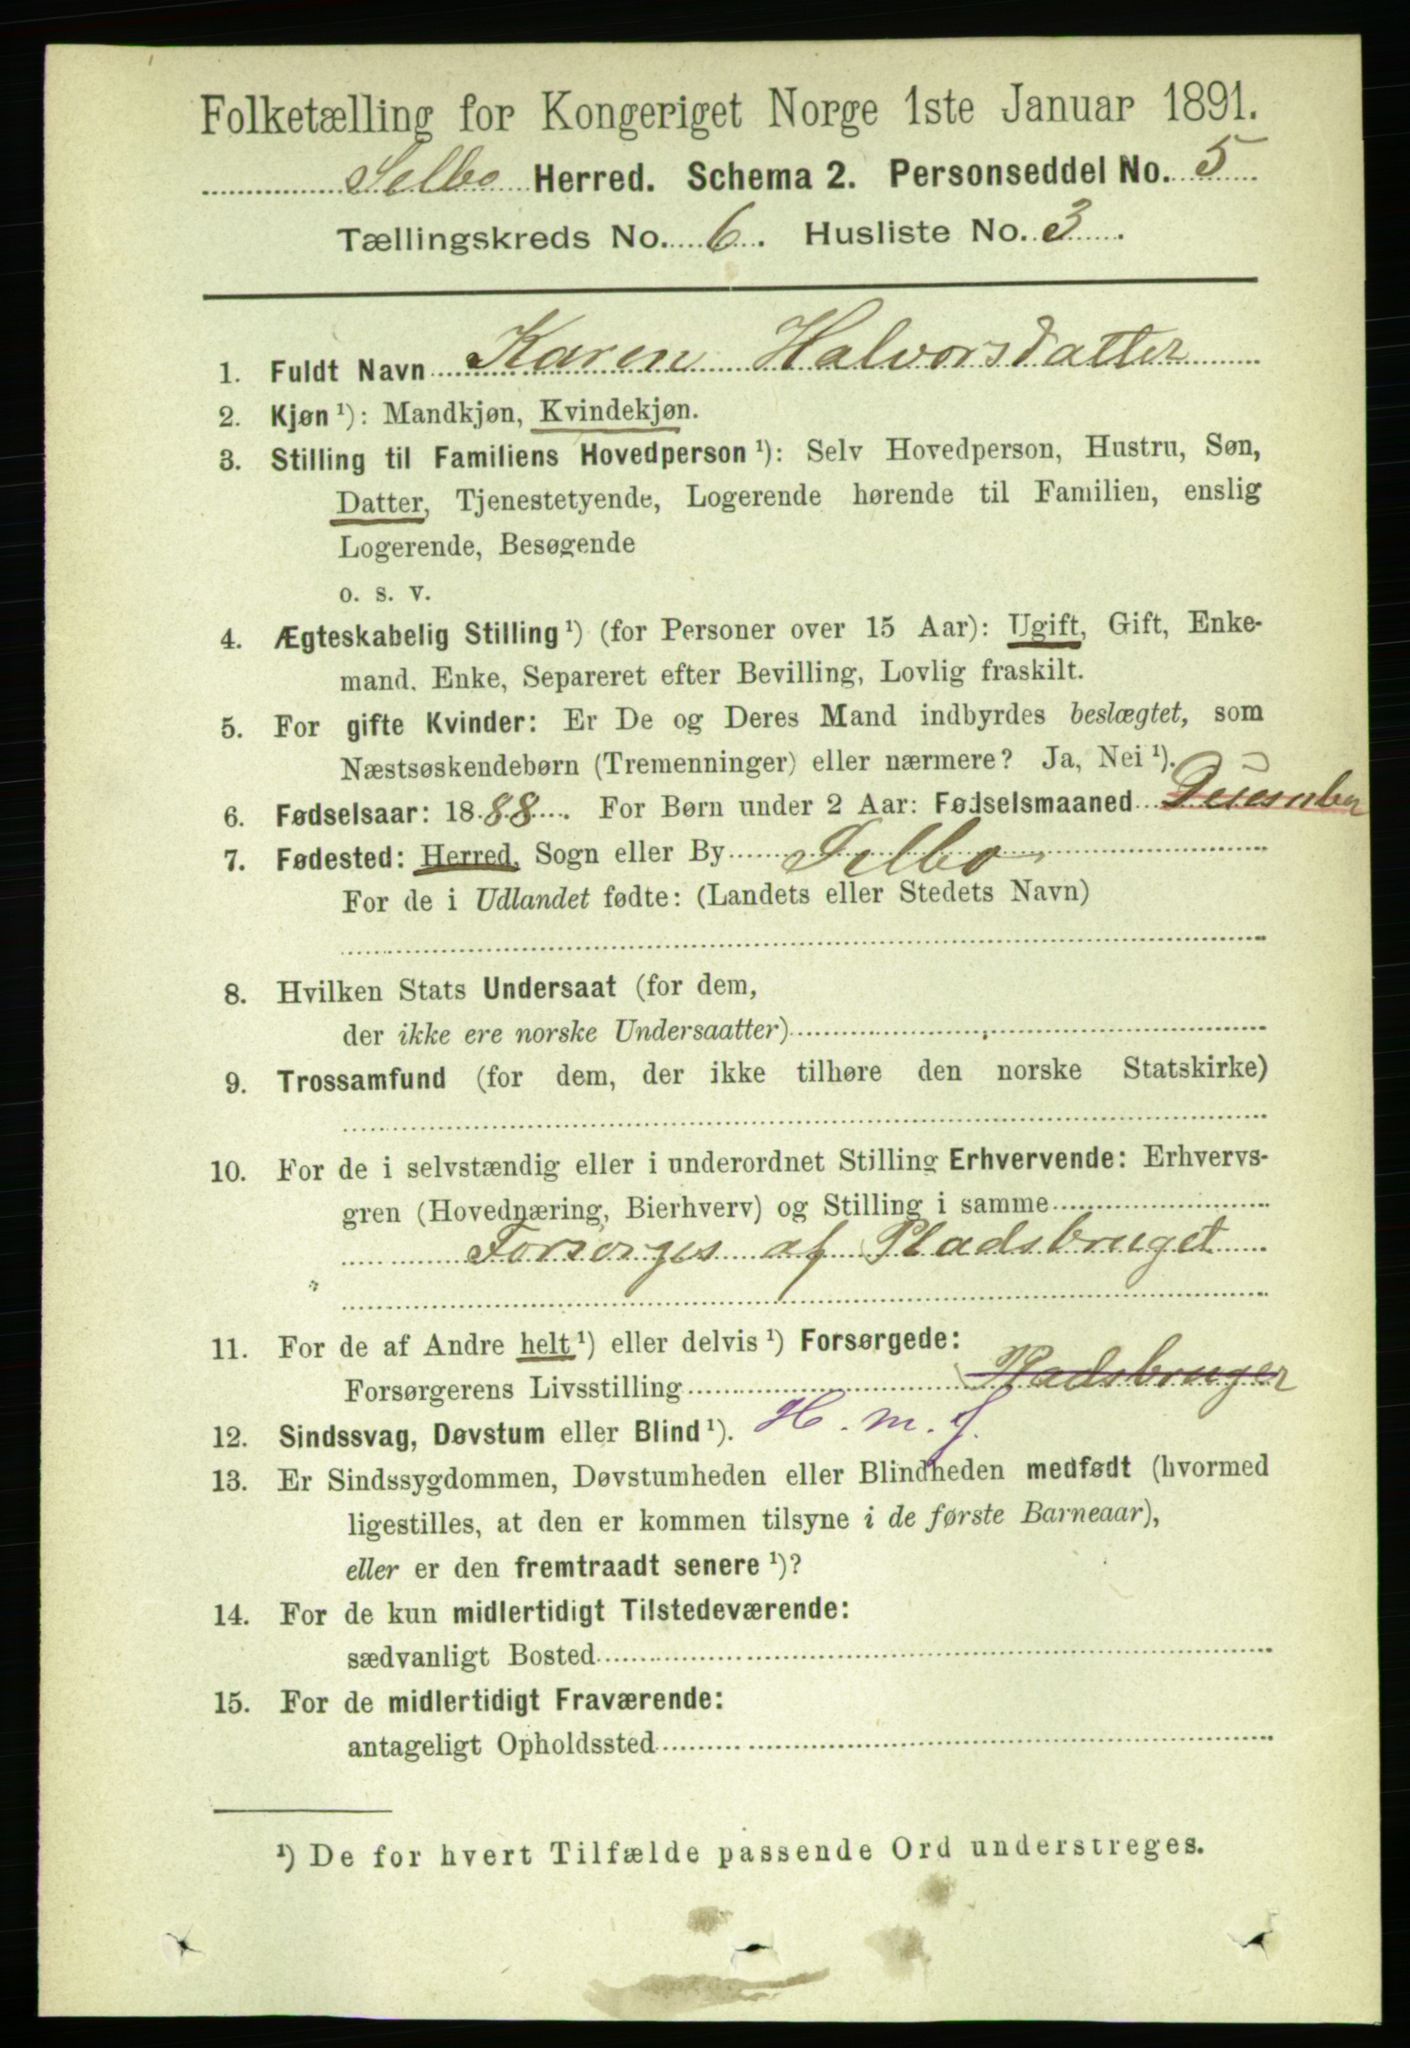 Folketælling for Kongeriget Norge 1ste Januar 1891.
Selbo Herred. Schema 2. Personseddel No. 5
Tællingskreds No. 6. Husliste No. 3.
1. Fuldt Navn Karen Halvorsdatter
2. Kjøn ¹): Mandkjøn, Kvindekjøn.
3. Stilling til Familiens Hovedperson ¹): Selv Hovedperson, Hustru, Søn,
Datter, Tjenestetyende, Logerende hørende til Familien, enslig
Logerende, Besøgende
o. s. v.
4. Ægteskabelig Stilling ¹) (for Personer over 15 Aar): Ugift, Gift, Enke-
mand. Enke, Separeret efter Bevilling, Lovlig fraskilt.
5. For gifte Kvinder: Er De og Deres Mand indbyrdes beslægtet, som
Næstsøskendebørn (Tremenninger) eller nærmere? Ja, Nei ¹).
6. Fødselsaar: 1888. For Børn under 2 Aar: Fødselsmaaned December
7. Fødested: Herred, Sogn eller By Selbo
For de i Udlandet fødte: (Landets eller Stedets Navn)
8. Hvilken Stats Undersaat (for dem,
der ikke ere norske Undersaatter)
9. Trossamfund (for dem, der ikke tilhøre den norske Statskirke)
10. For de i selvstændig eller i underordnet Stilling Erhvervende: Erhvervs-
gren (Hovednæring, Bierhverv) og Stilling i samme
Forsørges af Pladsbruget
11. For de af Andre helt ¹) eller delvis ¹) Forsørgede:
Forsørgerens Livsstilling Pladsbruger
12. Sindssvag, Døvstum eller Blind ¹). H. m. J.
13. Er Sindssygdommen, Døvstumheden eller Blindheden medfødt (hvormed
ligestilles, at den er kommen tilsyne i de første Barneaar),
eller er den fremtraadt senere ¹)?
14. For de kun midlertidigt Tilstedeværende:
sædvanligt Bosted
15. For de midlertidigt Fraværende:
antageligt Opholdssted
¹) De for hvert Tilfælde passende Ord understreges.